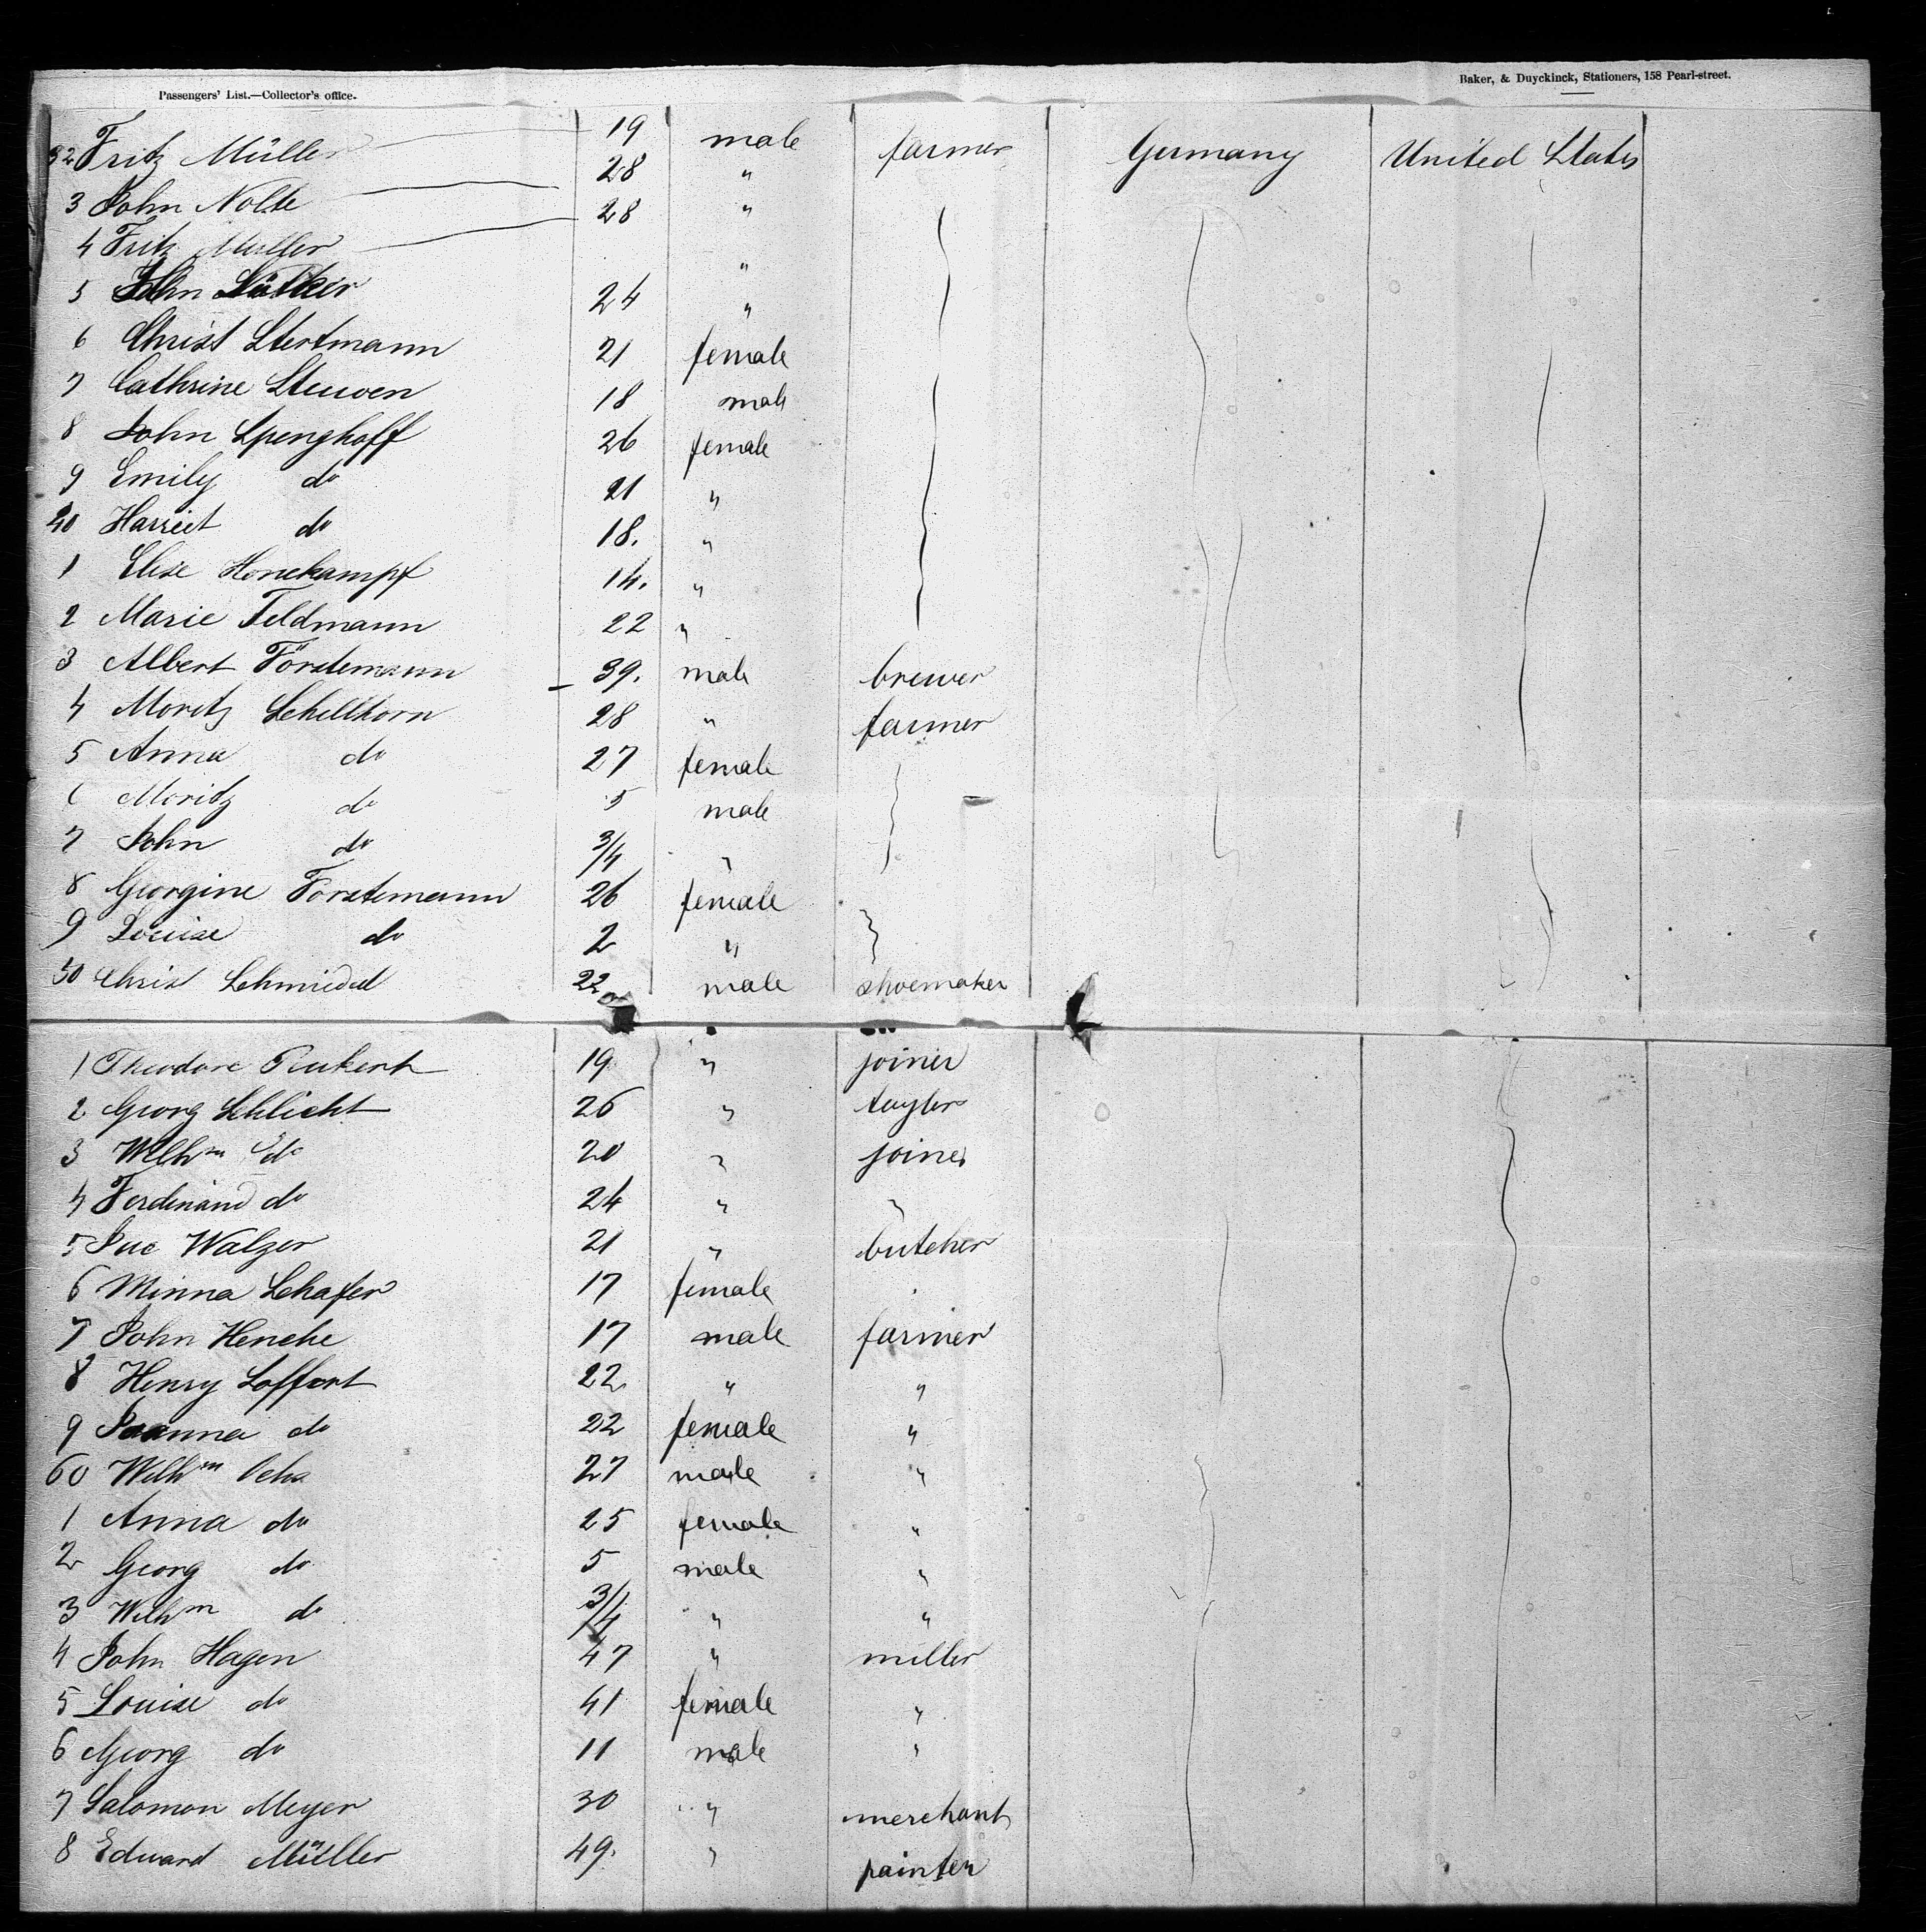 Passengers' List.—Collector's office.
Baker, & Duyckinck, Stationers, 158 Pearl-street.
32 Fritz Müller 19 male farmer Germany United States
3 John Nolte 28 "
4 Fritz Müller 28 "
5 John "
6 Christ Stertmann 24 "
7 Cathrine Stuwen 21 female
8 John Spenghoff 18 male
9 Emily do 26 female
40 Harriet do 21 "
1 Elise Honekampf 18. "
2 Marie Feldmann 14. "
22 "
3 Albert Förstemann 39. male brewer
4 Moritz Schellhorn 28 " farmer
5 Anna do 27 female
6 Moritz do 5 male
7 John do 3/4 "
8 Georgine Förstemann 26 female
9 Louise do 2 "
50 Christ Schmiedel 22 male shoemaker
1 Theodore Peukert 19 " joiner
2 Georg Schlicht 26 " taylor
3 Wilhm do 20 " joiner
4 Ferdinand do 24 " "
5 Walzer 21 " butcher
6 Minna Schafer 17 female
7 John Henche 17 male farmer
8 Henry Loffert 22 " "
9 Joanna do 22 female "
60 Wilhm Ochs 27 male "
1 Anna do 25 female "
2 Georg do 5 male "
3 Wilhm do 3/4 " "
4 John Hagen 47 " miller
5 Louise do 41 female "
6 Georg do 11 male "
7 Salomon Meyer 30 " merchant
8 Edward Müller 49. " painter